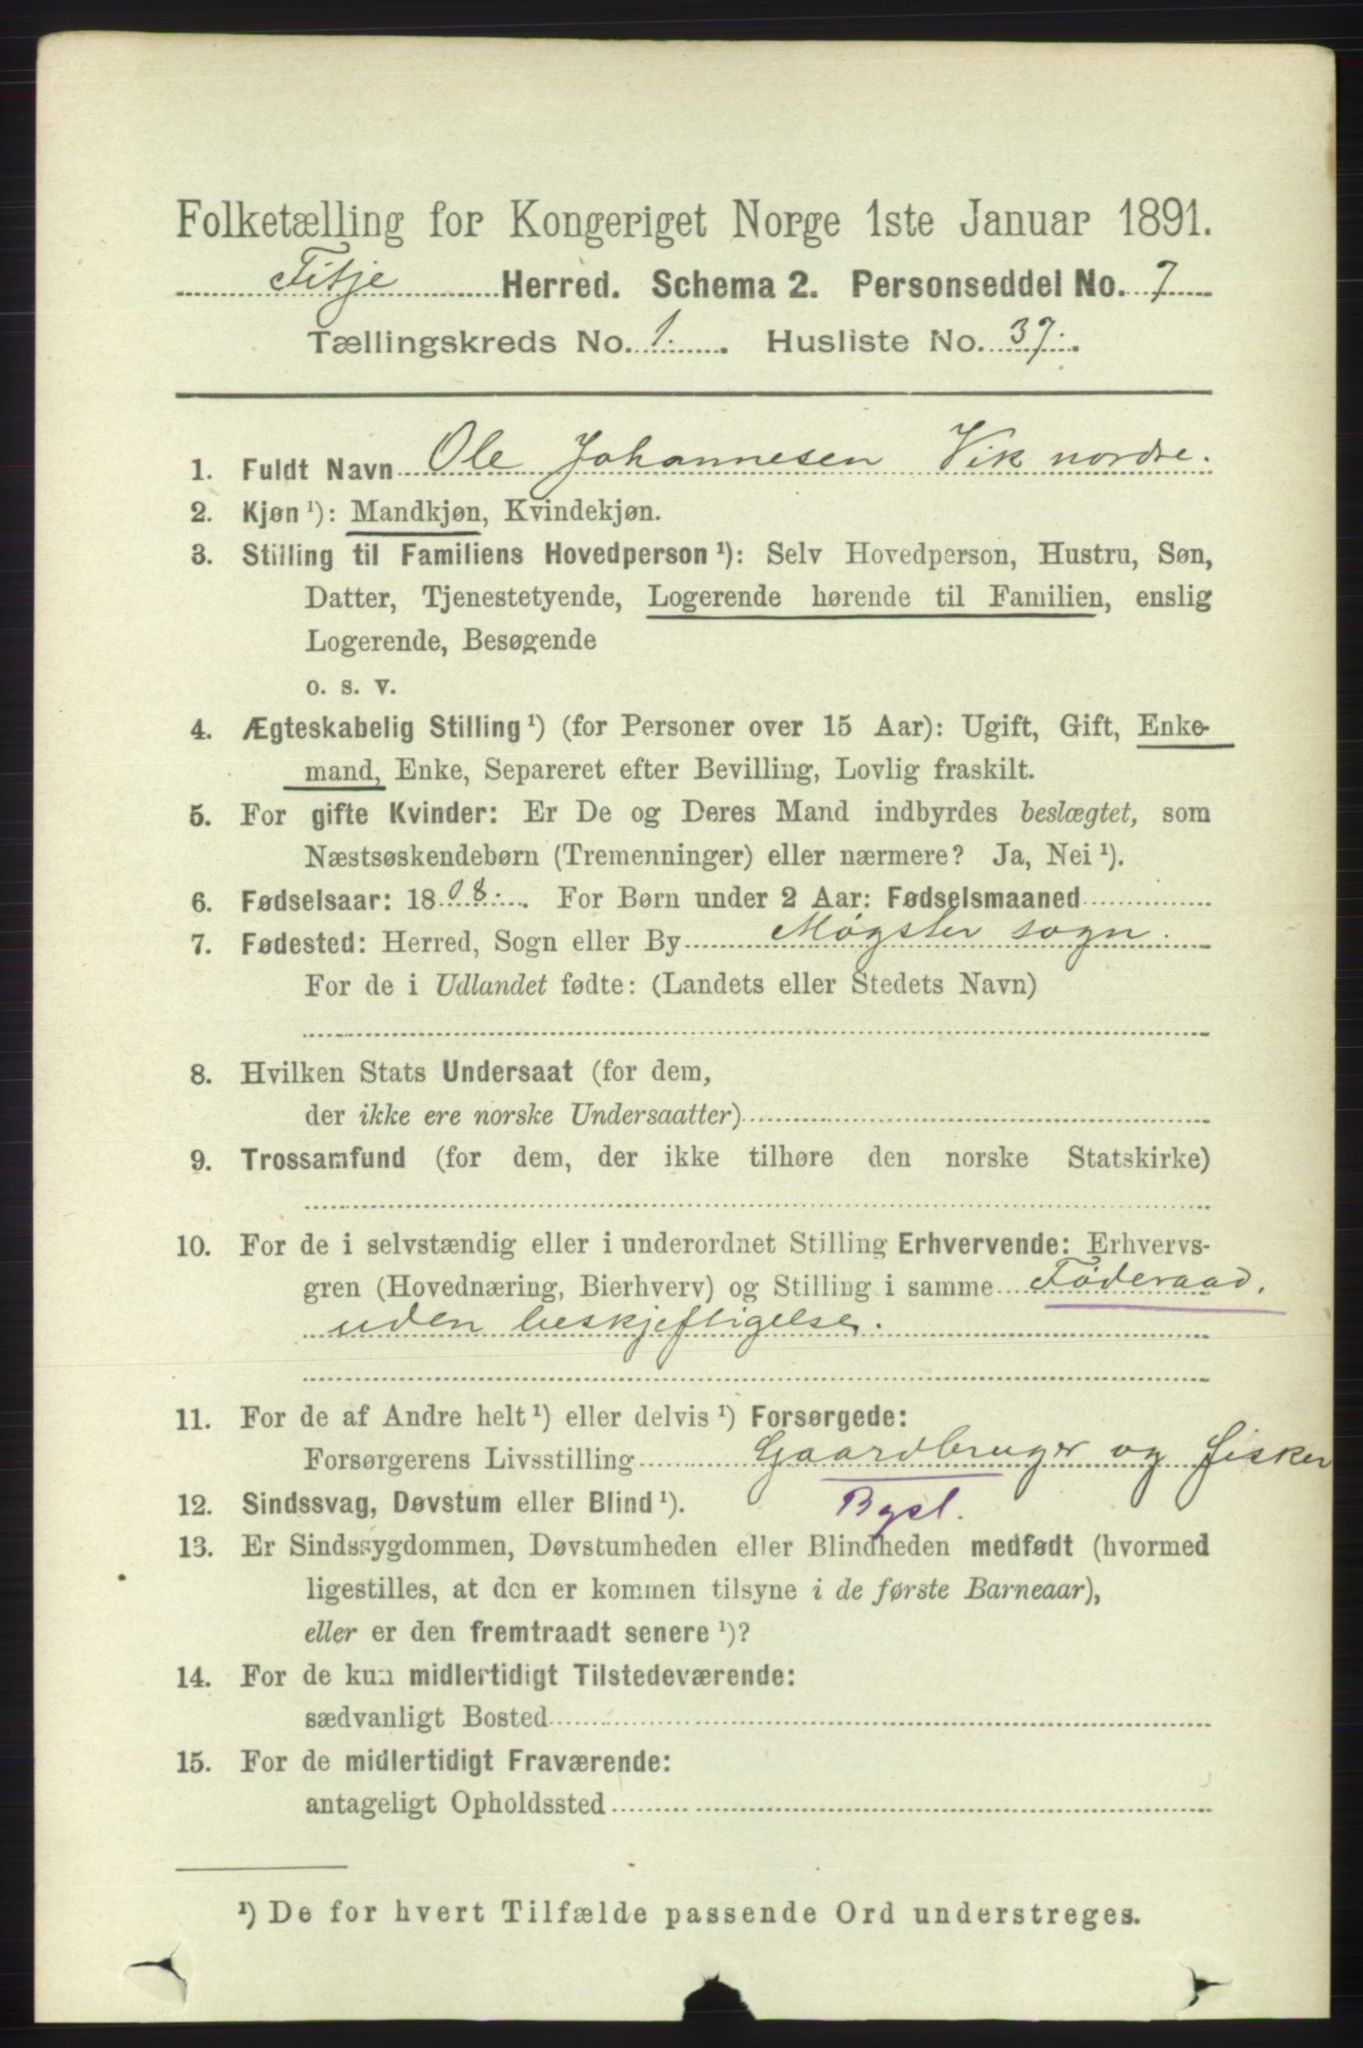 Folketælling for Kongeriget Norge 1ste Januar 1891.
Fitje Herred. Schema 2. Personseddel No. 7
Tællingskreds No. 1. Husliste No. 37.
1. Fuldt Navn Ole Johannesen Vik nordre.
2. Kjøn ¹): Mandkjøn, Kvindekjøn.
3. Stilling til Familiens Hovedperson ¹): Selv Hovedperson, Hustru, Søn,
Datter, Tjenestetyende, Logerende hørende til Familien, enslig
Logerende, Besøgende
o. s. v.
4. Ægteskabelig Stilling ¹) (for Personer over 15 Aar): Ugift, Gift, Enke-
mand, Enke, Separeret efter Bevilling, Lovlig fraskilt.
5. For gifte Kvinder: Er De og Deres Mand indbyrdes beslægtet, som
Næstsøskendebørn (Tremenninger) eller nærmere? Ja, Nei ¹).
6. Fødselsaar: 1808. For Børn under 2 Aar: Fødselsmaaned
7. Fødested: Herred, Sogn eller By Møgster sogn.
For de i Udlandet fødte: (Landets eller Stedets Navn)
8. Hvilken Stats Undersaat (for dem,
der ikke ere norske Undersaatter)
9. Trossamfund (for dem, der ikke tilhøre den norske Statskirke)
10. For de i selvstændig eller i underordnet Stilling Erhvervende: Erhvervs-
gren (Hovednæring, Bierhverv) og Stilling i samme Føderaad.
uden beskjeftigelse.
11. For de af Andre helt ¹) eller delvis ¹) Forsørgede:
Forsørgerens Livsstilling Gaardbruger og fisker
12. Sindssvag, Døvstum eller Blind ¹). Bgsl.
13. Er Sindssygdommen, Døvstumheden eller Blindheden medfødt (hvormed
ligestilles, at den er kommen tilsyne i de første Barneaar),
eller er den fremtraadt senere ¹)?
14. For de kun midlertidigt Tilstedeværende:
sædvanligt Bosted
15. For de midlertidigt Fraværende:
antageligt Opholdssted
¹) De for hvert Tilfælde passende Ord understreges.